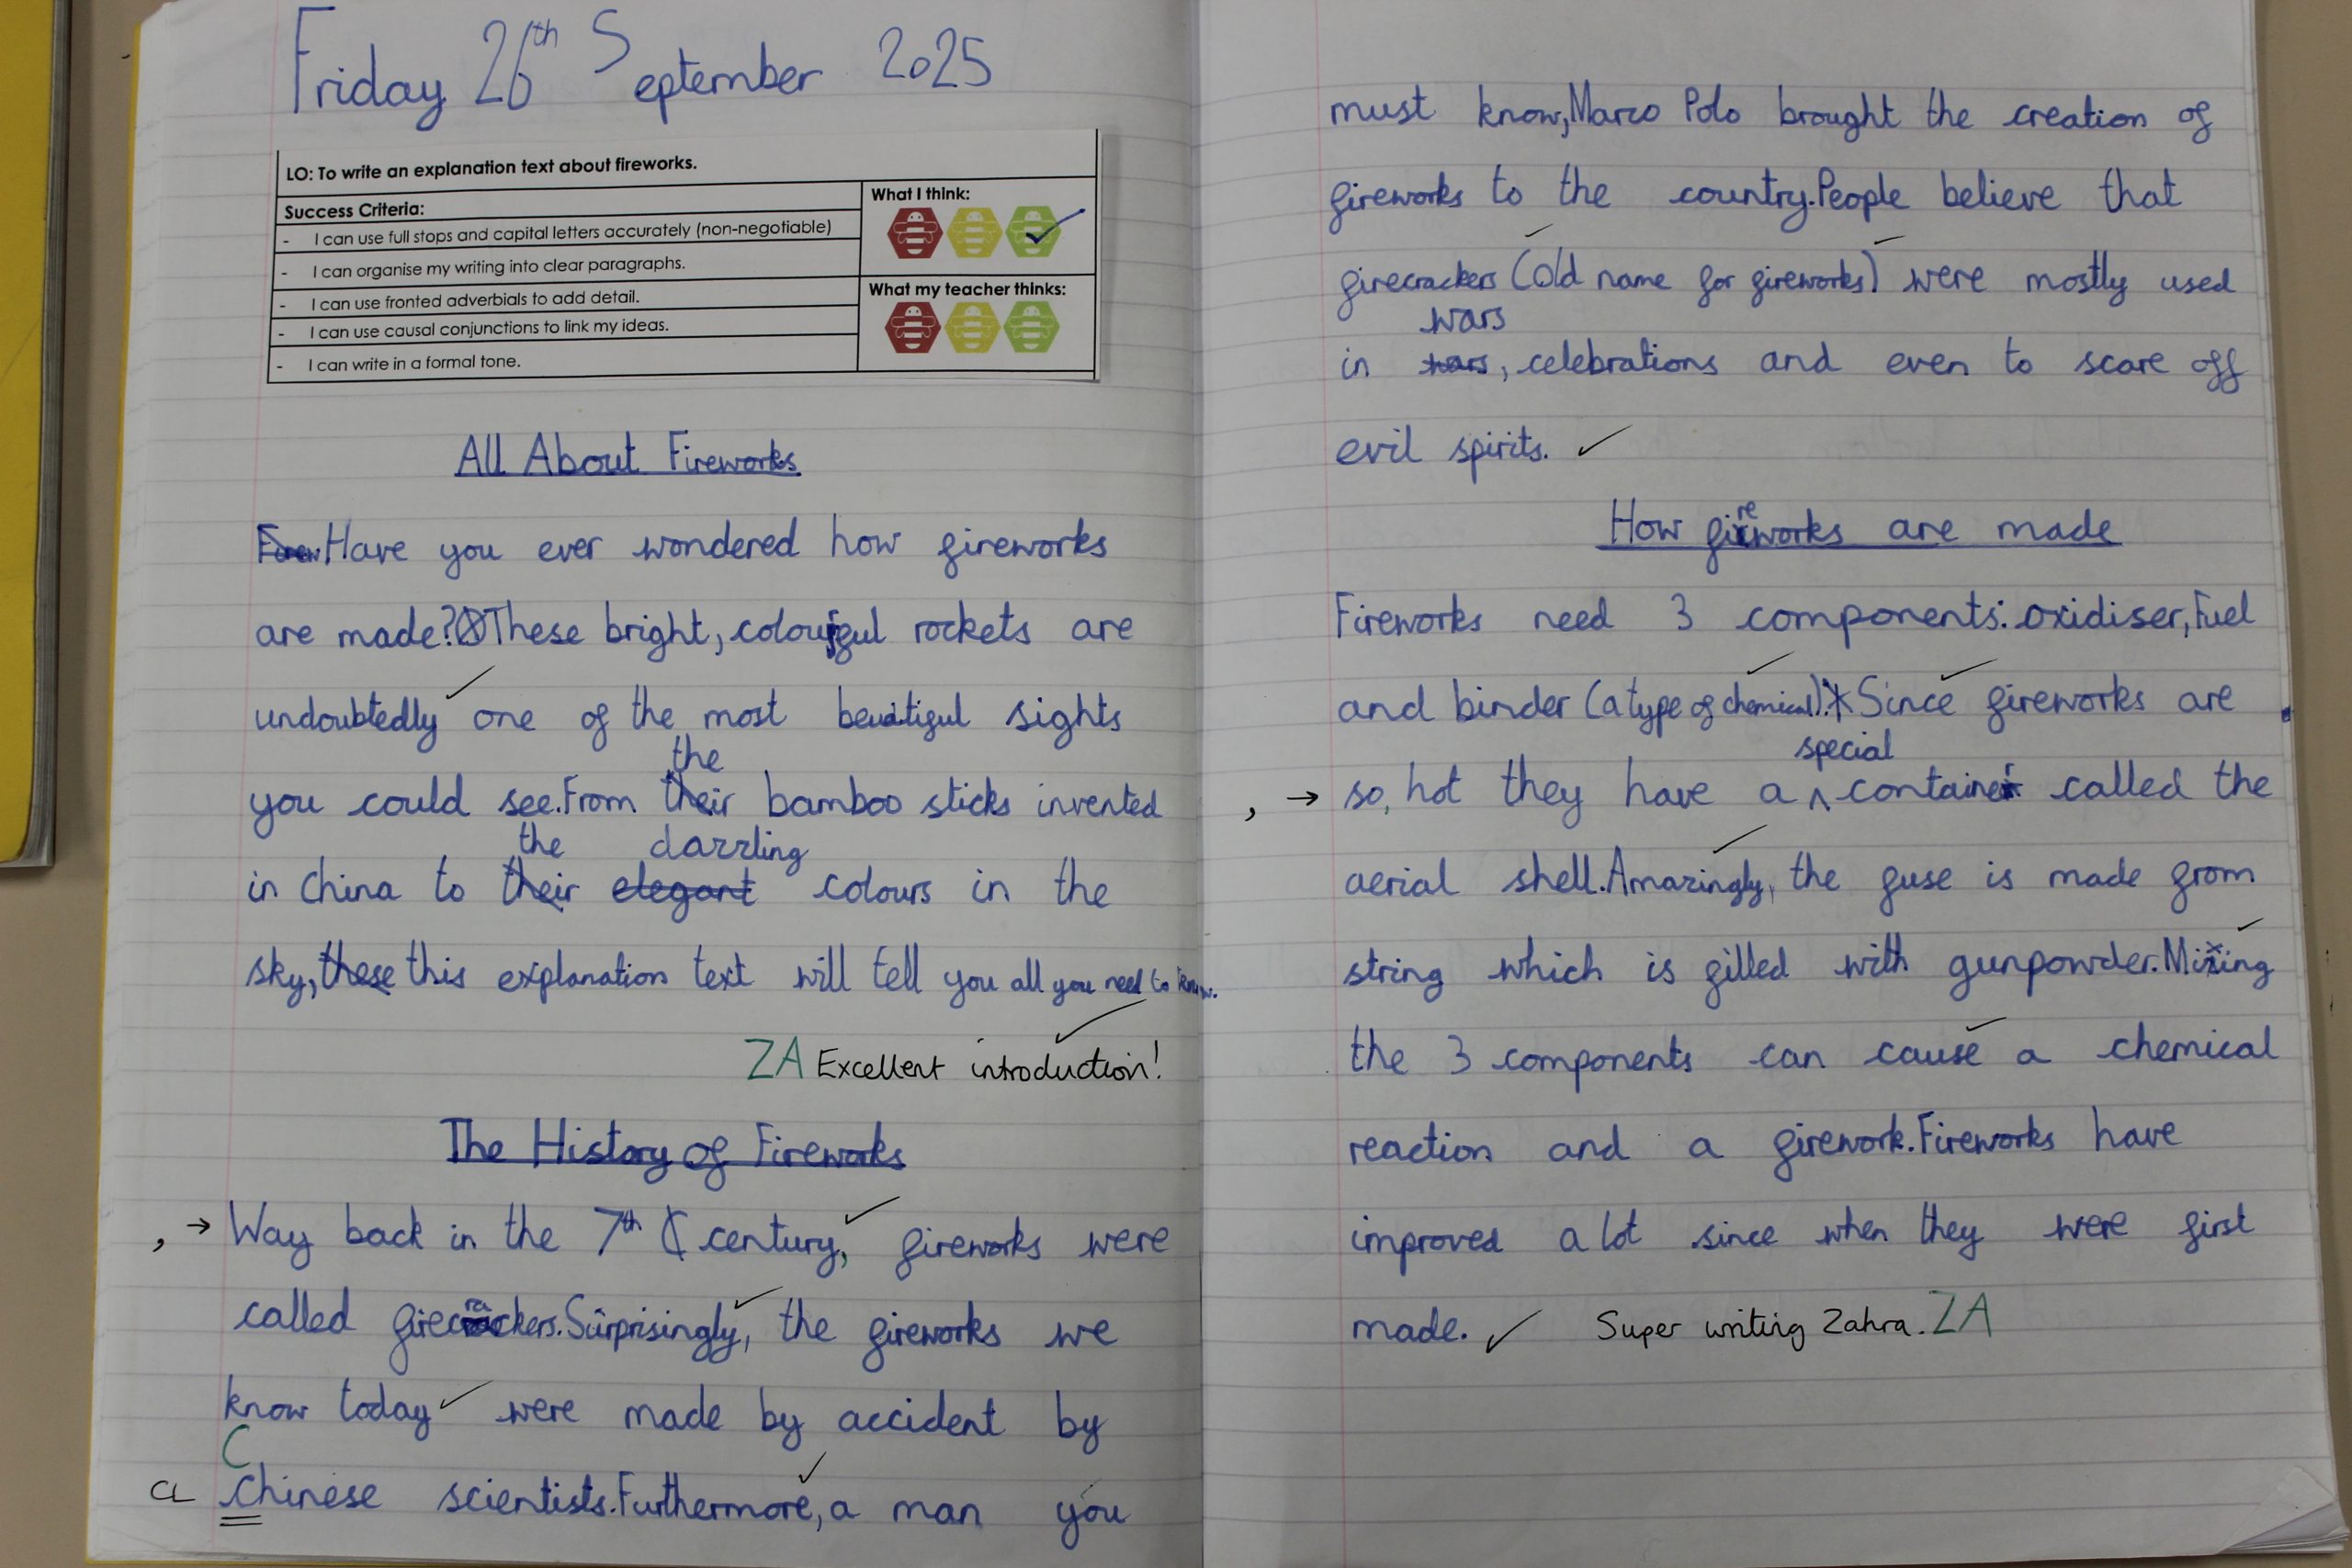 Friday 26th September 2025
LO: To write an explanation text about fireworks.
Success Criteria:
- I can use full stops and capital letters accurately (non-negotiable)
- I can organise my writing into clear paragraphs.
- I can use fronted adverbials to add detail.
- I can use causal conjunctions to link my ideas.
- I can write in a formal tone.
What I think:
What my teacher thinks:
All About Fireworks
Have you ever wondered how fireworks
are made? These bright, colourful rockets are
undoubtedly one of the most beautiful sights
the
you could see. From their bamboo sticks invented
the dazzling
in China to their elegant colours in the
sky, these this explanation text will tell you all you need to know.
ZA Excellent introduction!
The History of Fireworks
, → Way back in the 7th century, fireworks were
called firecrackers. Surprisingly, the fireworks we
know today were made by accident by
C
CL chinese scientists. Furthermore, a man you
must know, Marco Polo brought the creation of
fireworks to the country. People believe that
firecrackers (old name for fireworks) were mostly used
wars
in , celebrations and even to scare off
evil spirits.
How fireworks are made
Fireworks need 3 components: oxidiser, Fuel
and binder (a type of chemical). Since fireworks are
special
, → so, hot they have a ^ container called the
aerial shell. Amazingly, the fuse is made from
string which is filled with gunpowder. Mixing
the 3 components can cause a chemical
reaction and a firework. Fireworks have
improved a lot since when they were first
made. Super writing Zahra. ZA